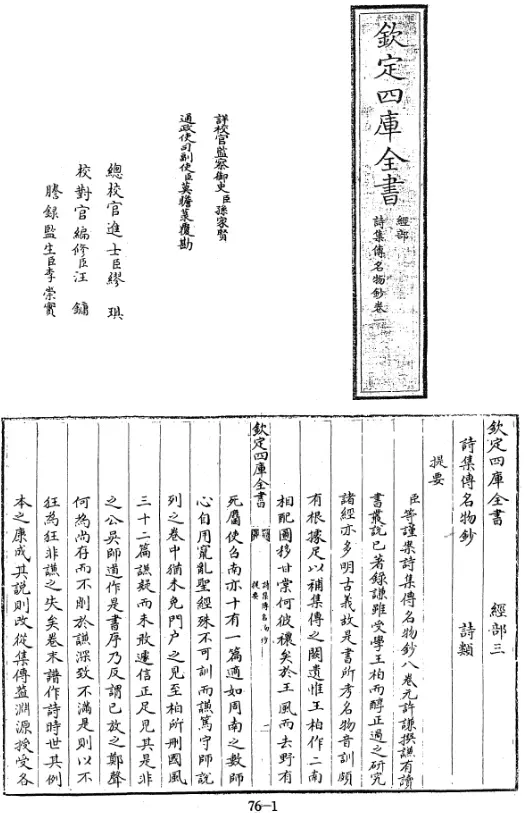 欽定四庫全書
經部
詩集傳名物鈔卷一
詳校官監察御史臣孫家賢
通政使司副使臣莫瞻菉覆勘
總校官進士臣繆琪
校對官編修臣汪鏞
謄錄監生臣李崇實
欽定四庫全書 經部三
詩集傳名物鈔 詩類
提要
臣等謹案詩集傳名物鈔八卷元許謙撰謙有讀
書叢說已著錄謙雖受學王柏而醇正過之研究
諸經亦多明古義故是書所考名物音訓頗
有根據足以補集傳之闕遺惟王柏作二南
相配圖移甘棠何彼襛矣於王風而去野有
欽定四庫全書
詩集傳名物鈔
提要
死麕使召南亦十有一篇適如周南之數師
心自用竄亂聖經殊不可訓而謙篤守師說
列之卷中猶未免門户之見至柏所刪國風
三十二篇謙疑而未敢遽信正足見其是非
之公吳師道作是書序乃反謂已放之鄭聲
何為尚存而不削於謙深致不滿是則以不
狂為狂非謙之失矣卷末譜作詩時世其例
本之康成其說則改從集傳蓋淵源授受各
76—1